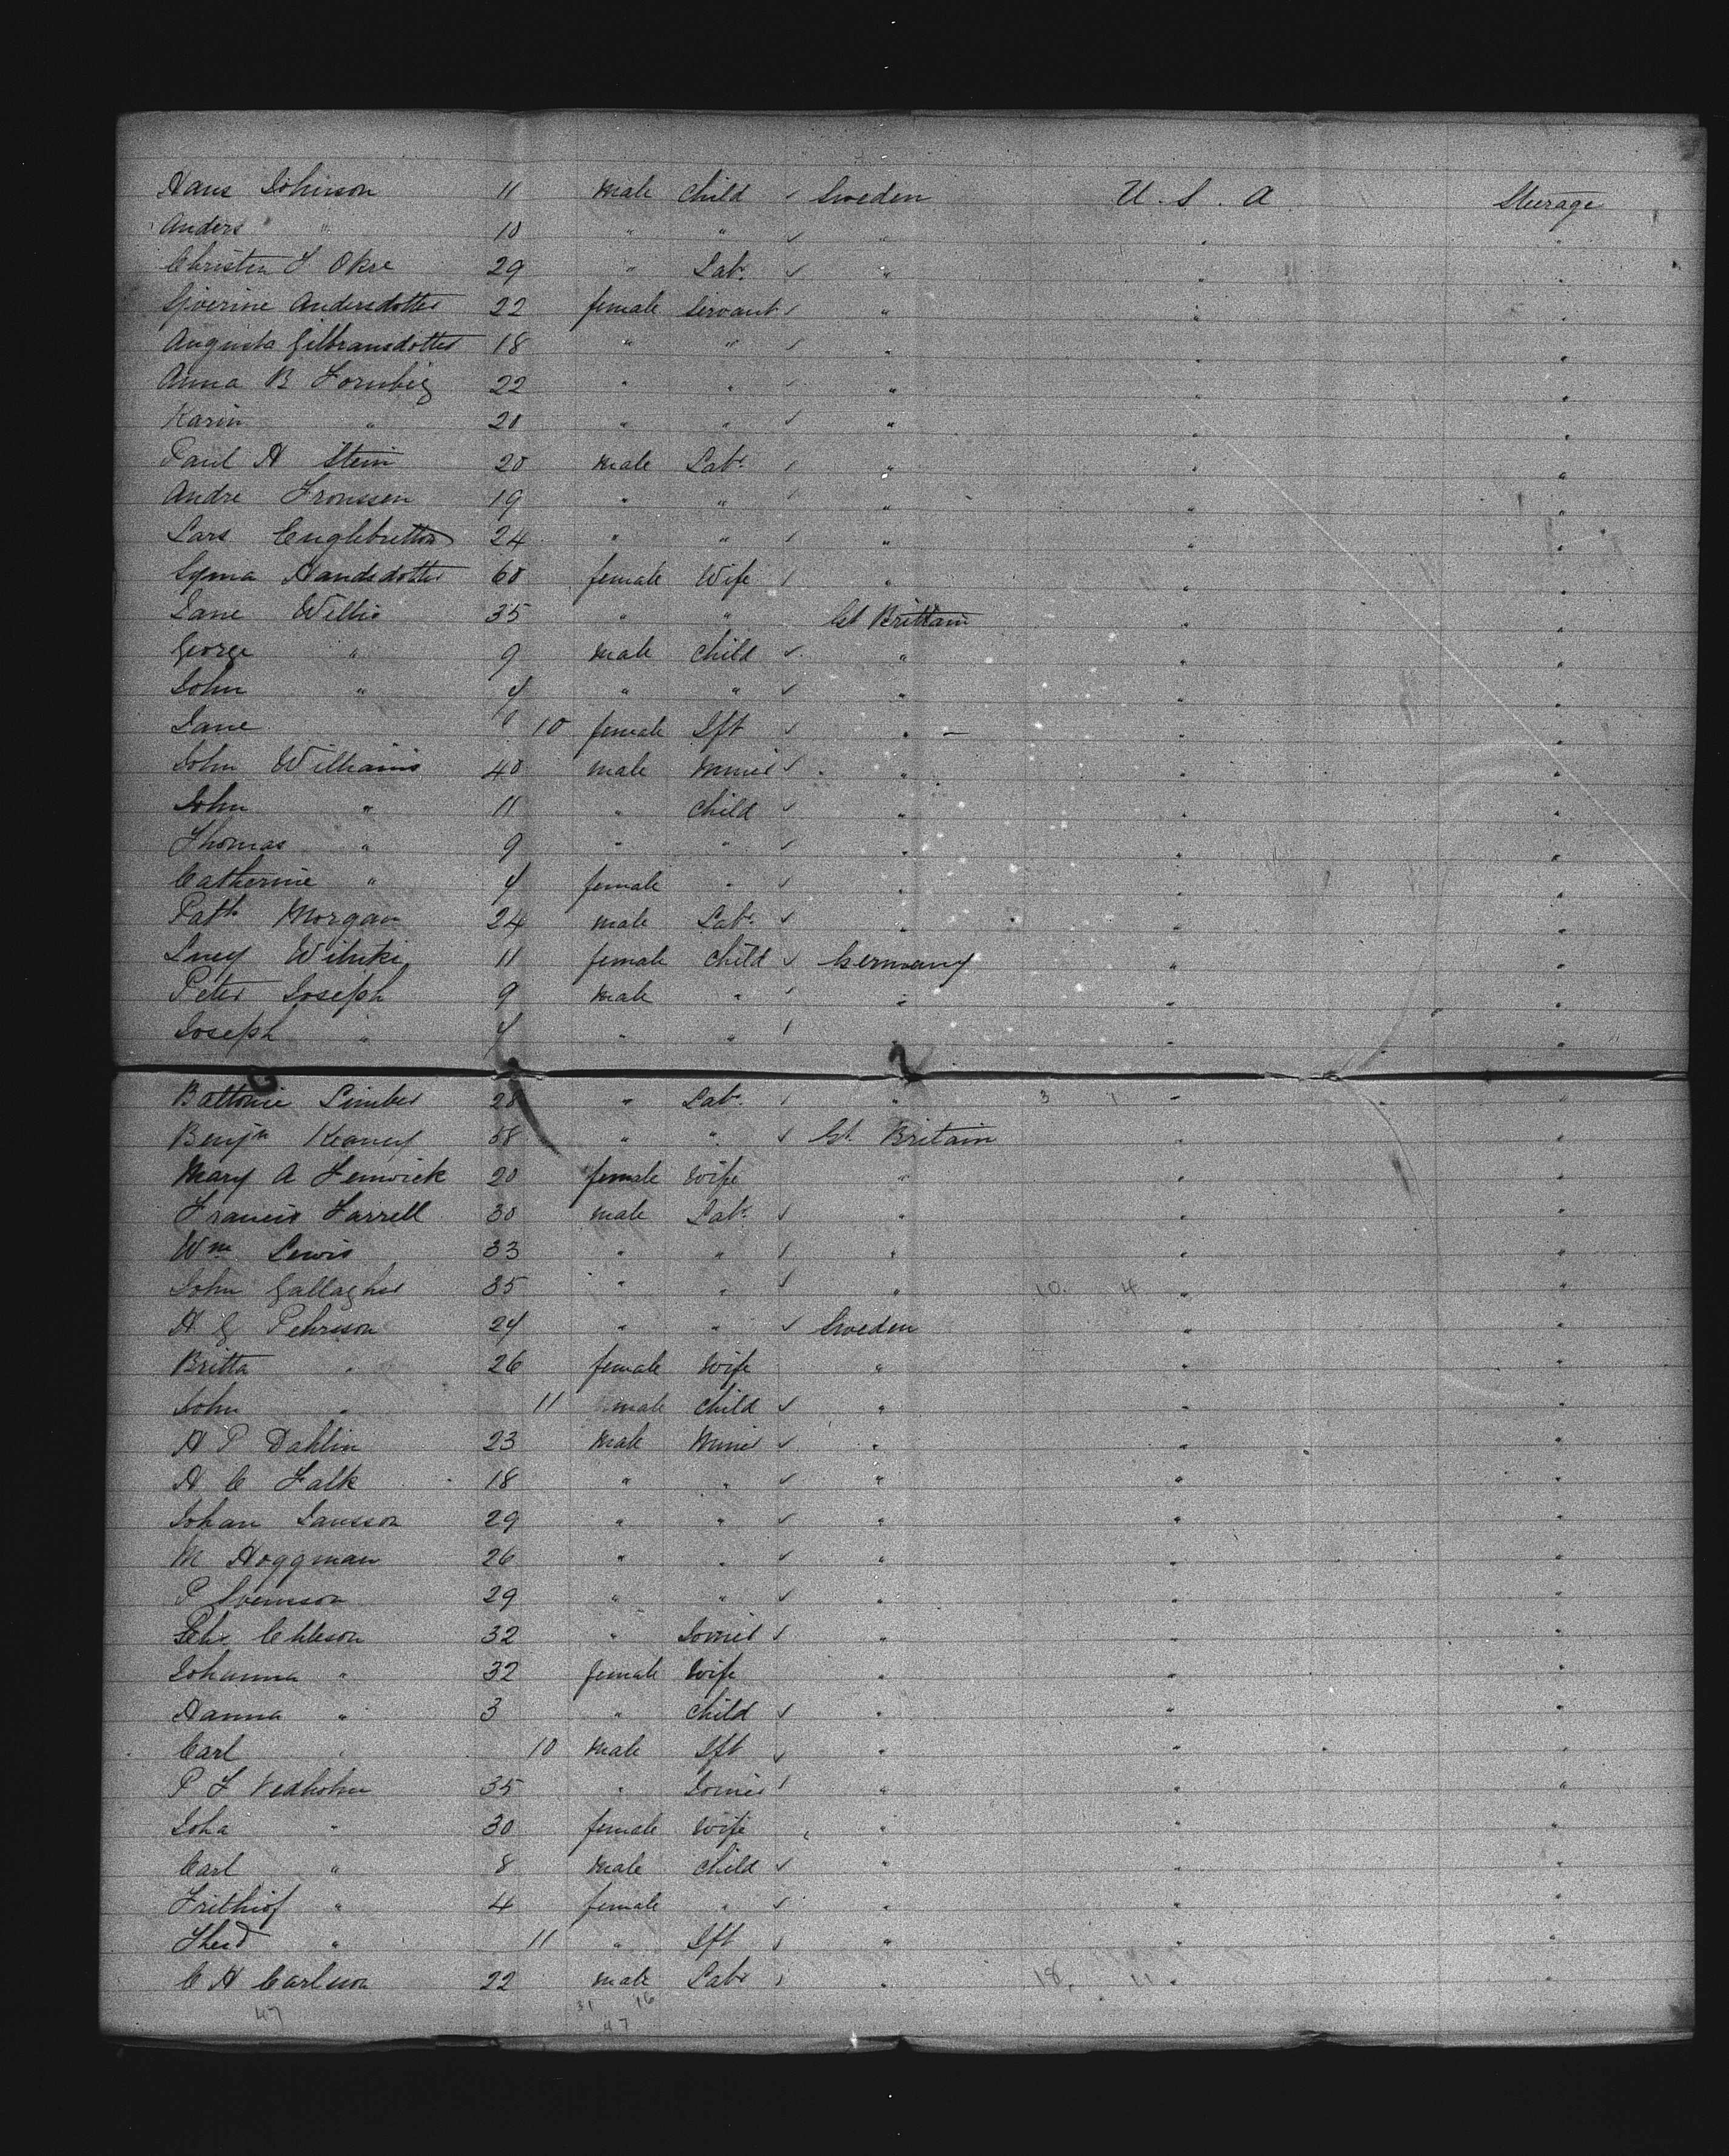 Hans Johnson 11 male child ✓ Sweden U. S. A Steerage
Anders " 10 " " ✓ " " "
Christen J Okre 29 " Labr ✓ " " "
Andersdotter 22 female Servant ✓ " " "
Augusta 18 " " ✓ " " "
Anna B 22 " " ✓ " " "
Karin " 20 " " ✓ " " "
Paul H Stein 20 male Labr ✓ " " "
Andre 19 " " ✓ " " "
Lars 24 " " ✓ " " "
60 female Wife ✓ " " "
Jane Willis 35 " " Gt Brittain " "
George " 9 male child ✓ " " "
John " 4 " " ✓ " " "
Jane 10 female Ift ✓ " " "
John Williams 40 male Miner ✓ " " "
John " 11 " child ✓ " " "
Thomas " 9 " " ✓ " " "
Catherine " 4 female " ✓ " " "
Patk Morgan 24 male Labr ✓ " " "
Lucy 11 female child ✓ Germany " "
Peter Joseph 9 male " ✓ " " "
Joseph " 4 " " ✓ " "
Limber 28 " Labr ✓ " 3 1 " "
Benjn Keaney 58 " " ✓ Gt Britain " "
Mary A Fenwick 20 female wife " " "
Francis Farrell 30 male Labr ✓ " " "
Wm Lewis 33 " " ✓ " " "
John Gallagher 35 " " ✓ " 10 4 " "
H G Pehrson 24 " " ✓ Sweden " "
Britta " 26 female wife " " "
John " 11 male child ✓ " " "
H P Dahlin 23 male Miner ✓ " " "
A C Falk 18 " " ✓ " " "
Johan Jansson 29 " " ✓ " " "
M Hoggman 26 " " ✓ " " "
P Svenson 29 " " ✓ " " "
32 " Joiner ✓ " " "
Johanna " 32 female wife " " "
Hanna " 3 " child ✓ " " "
Carl " 10 male Ift ✓ " " "
P F Vedholm 35 " Joiner ✓ " " "
Joha " 30 female wife " " "
Carl " 8 male child ✓ " " "
Frithiof " 4 female " ✓ " " "
" 11 " Ift ✓ " " "
C H Carlson 22 male Labr ✓ " 18 11 " "
47 31 16
47